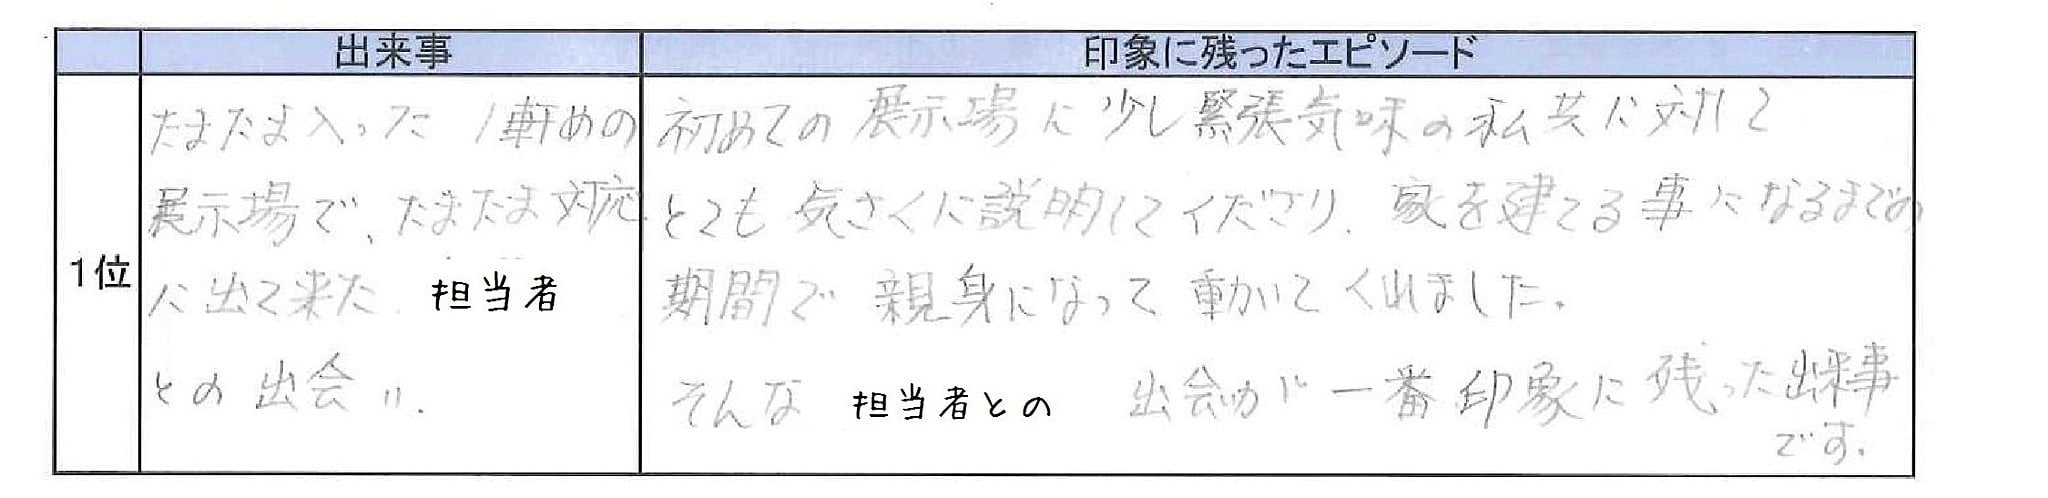 出来事
印象に残ったエピソード
1位
たまたま入った1軒めの
展示場で、たまたま対応
に出て来た 担当者
との出会い.
初めての展示場に少し緊張気味の私共に対して
とても気さくに説明してくださり、家を建てる事になるまでの
期間で親身になって動いてくれました。
そんな 担当者との 出会いが一番印象に残った出来事
です。